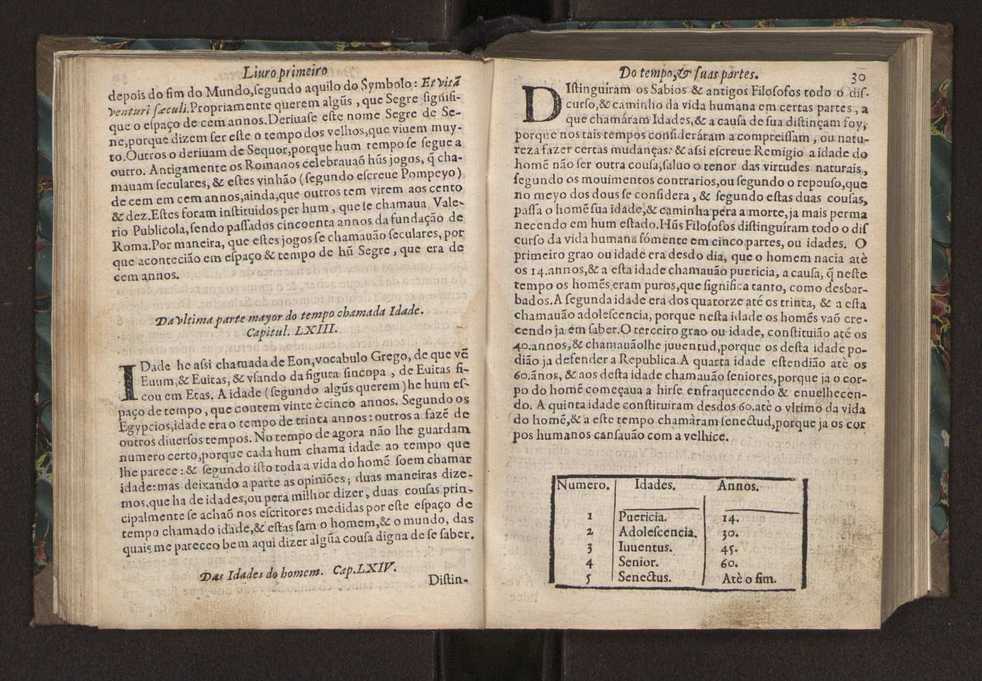 Liuro primeiro
depois do fim do Mundo,segundo aquilo do Symbolo: Et vitã
venturi sæculi.Propriamente querem algũs , que Segre signifi-
que o espaço de cem annos.Deriuase este nome Segre de Se-
ne,porque dizem ser este o tempo dos velhos,que viuem muy-
to.Outros o deriuam de Sequor,porque hum tempo se segue a
outro. Antigamente os Romanos celebrauaõ hũs jogos, q̃ cha-
mauam seculares, & estes vinhão (segundo escreue Pompeyo)
de cem em cem annos,ainda,que outros tem virem aos cento
& dez.Estes foram instituidos per hum , que se chamaua Vale-
rio Publicola,sendo passados cincoenta annos da fundação de
Roma.Por maneira, que estes jogos se chamauão seculares, por
que acontecião em espaço & tempo de hũ Segre , que era de
cem annos.
Da vltima parte mayor do tempo chamada Idade.
Capitul. LXIII.
IDade he assi chamada de Eon,vocabulo Grego, de que vẽ
Euum,& Euitas, & vsando da figura sincopa , de Euitas fi-
cou em Etas. A idade (segundo algũs querem) he hum es-
paço de tempo , que contem vinte & cinco annos. Segundo os
Egypcios,idade era o tempo de trinta annos: outros a fazẽ de
outros diuersos tempos. No tempo de agora não lhe guardam
numero certo,porque cada hum chama idade ao tempo que
lhe parece : & segundo isto toda a vida do homẽ soem chamar
idade:mas deixando a parte as opiniões; duas maneiras dize-
mos,que ha de idades,ou pera milhor dizer, duas cousas prin-
cipalmente se achaõ nos escritores medidas por este espaço de
tempo chamado idade,& estas sam o homem,& o mundo, das
quais me pareceo bem aqui dizer algũa cousa digna de se saber.
Das Idades do homem. Cap.LXIV.
Distin-
Do tempo,& suas partes. 30
DIstinguiram os Sabios & antigos Filosofos todo o dis-
curso,& caminho da vida humana em certas partes , a
que chamáram Idades,& a causa de sua distinçam foy,
porque nos tais tempos consideráram a compreissam , ou natu-
reza fazer certas mudanças: & assi escreue Remigio a idade do
homẽ não ser outra cousa,saluo o tenor das virtudes naturais,
segundo os mouimentos contrarios,ou segundo o repouso,que
no meyo dos dous se considera , & segundo estas duas cousas,
passa o homẽ sua idade,& caminha pera a morte,ja mais perma
necendo em hum estado.Hũs Filosofos distinguiram todo o dis
curso da vida humana sómente em cinco partes, ou idades. O
primeiro grao ou idade era desdo dia, que o homem nacia atè
os 14.annos,& a esta idade chamauão puericia, a causa, q̃ neste
tempo os homẽs eram puros,que significa tanto, como desbar-
bados.A segunda idade era dos quatorze até os trinta, & a esta
chamauão adolescencia, porque nesta idade os homẽs vaõ cre-
cendo ja em saber.O terceiro grao ou idade, constituião até os
40.annos,& chamauãolhe juuentud,porque os desta idade po-
dião ja defender a Republica.A quarta idade estendião atè os
60.ãnos, & aos desta idade chamauão seniores,porque ja o cor-
po do homẽ começaua a hirse enfraquecendo & enuelhecen-
do. A quinta idade constituiram desdos 60.atè o vltimo da vida
do homẽ,& a este tempo chamàram senectud,porque ja os cor
pos humanos cansauão com a velhice.
Numero. Idades. Annos.
1 Puericia. 14.
2 Adolescencia. 30.
3 Iuuentus. 45.
4 Senior. 60.
5 Senectus. Atè o fim.